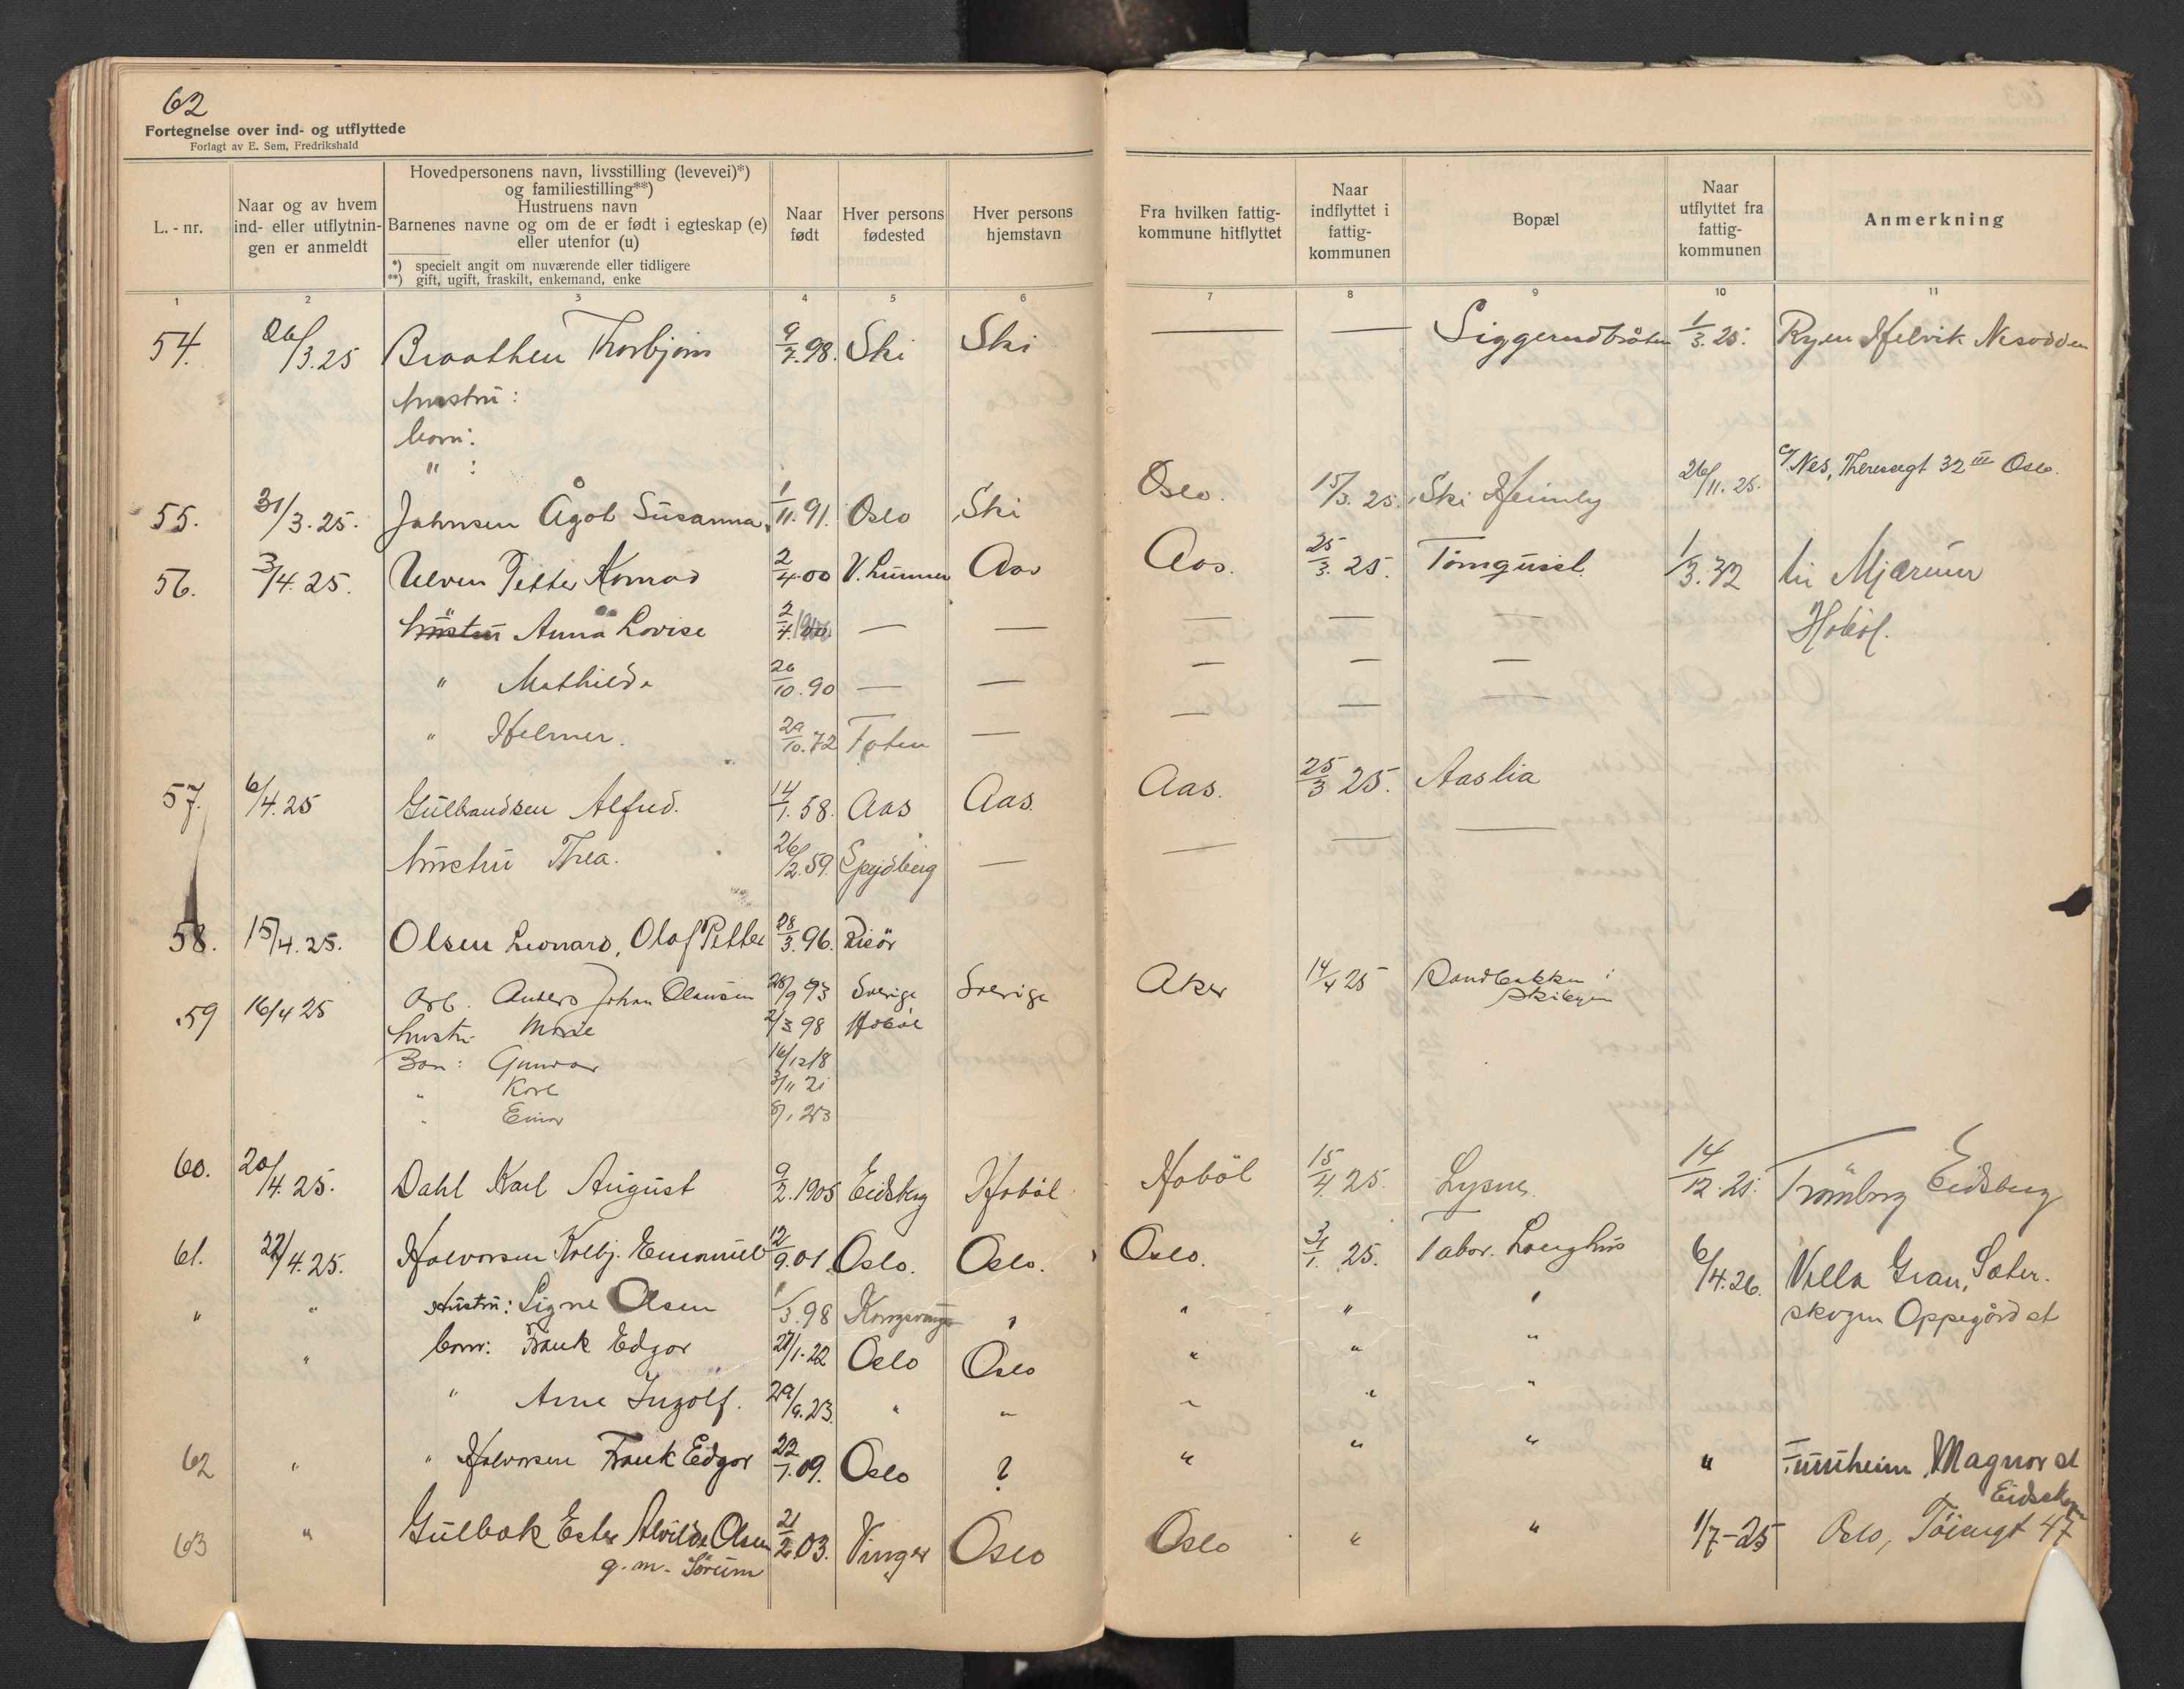 62
Fortegnelse over ind- og utflyttede
Forlagt av E. Sem, Fredrikshald
L. - nr.
Naar og av hvem
ind- eller utflytnin-
gen er anmeldt
Hovedpersonens navn, livsstilling (levevei)*)
og familiestilling**)
Hustruens navn
Barnenes navne og om de er født i egteskap (e)
eller utenfor (u)
*) specielt angit om nuværende eller tidligere
**) gift, ugift, fraskilt, enkemand, enke
Naar
født
Hver persons
fødested
Hver persons
hjemstavn
Fra hvilken fattig-
kommune hitflyttet
Naar
indflyttet i
fattig-
kommunen
Bopæl
Naar
utflyttet fra
fattig-
kommunen
Anmerkning
1 2 3 4 5 6 7 8 9 10 11
54. 26/3.25 Braathen Thorbjørn 9/7.98. Ski Ski — — Siggerudbråten 1/3.25. Ryen Helvik Nesodden
hustru:
barn:
" :
55. 31/3.25. Johnsen Ågot Susanna. 1/11.91. Oslo Ski Oslo. 15/3.25. Ski Heimly 26/11.25. c/ Nes, Theresegt 32 III Oslo.
56. 3/4.25. Ulven Petter Konrad 2/4.00 V. Lunner Aas Aas. 25/3.25. 1/3.32 til Mjærum
hustru Anna Lovise 2/4. — — — — — Hobøl.
" Mathilde 20/10.90 — — — — —
" Helmer. 29/10.72 Toten — — — —
57. 6/4.25 Gulbrandsen Alfred. 14/1.58. Aas Aas. Aas. 25/3 25. Aaslia
hustru Thea. 26/2.59. Spydberg — — — —
58. 15/4.25. Olsen Leonard, Olaf Petter 28/3.96. Risör
59 16/4 25 Arb. Anders Johan Olausen 28/9 93 Sverige Sverige Aker 14/4 25 Sandbakken i
Skibyen
hustr. Marie 2/3 98 Hobøl
Barn: Gunvor 16/12 18
" Karl 3/11 21
" Einar 8/1 23
60. 20/4.25. Dahl Karl August 9/2.1905 Eidsberg Hobøl Hobøl 15/4.25. Lysne. 14/12.25. Trömborg Eidsberg
61. 22/4.25. Halvorsen Kolbj. Emanuel 12/9.01. Oslo. Oslo. Oslo. 31/1. 25. Tabor. Langhus 6/4.26. Villa Gran, Sæter.
" " Hustru: Signe Olsen 1/3.98 Kongsvinger " " " " skogen Oppegård st
" barn: Frank Edgar 27/1.22 Oslo Oslo " " "
" Arne Ingolf. 29/9.23. " " " " "
62 " " Halvorsen Frank Edgar 22/1.09. Oslo ? " " " " Tunheim, Magnor st
Eidskogen
63 " Gulbak Ester Alvilde Olsen 21/2.03. Vinger Oslo Oslo " " 1/7-25 Oslo, Töiengt 47
g.m. Sørum